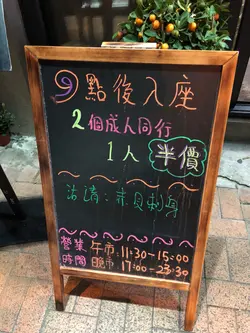 9點後入座
2個成人同行
1人 半價
活請:赤貝刺身
營業 午市:11:30-15:00
時間 晚市:17:00-23:30